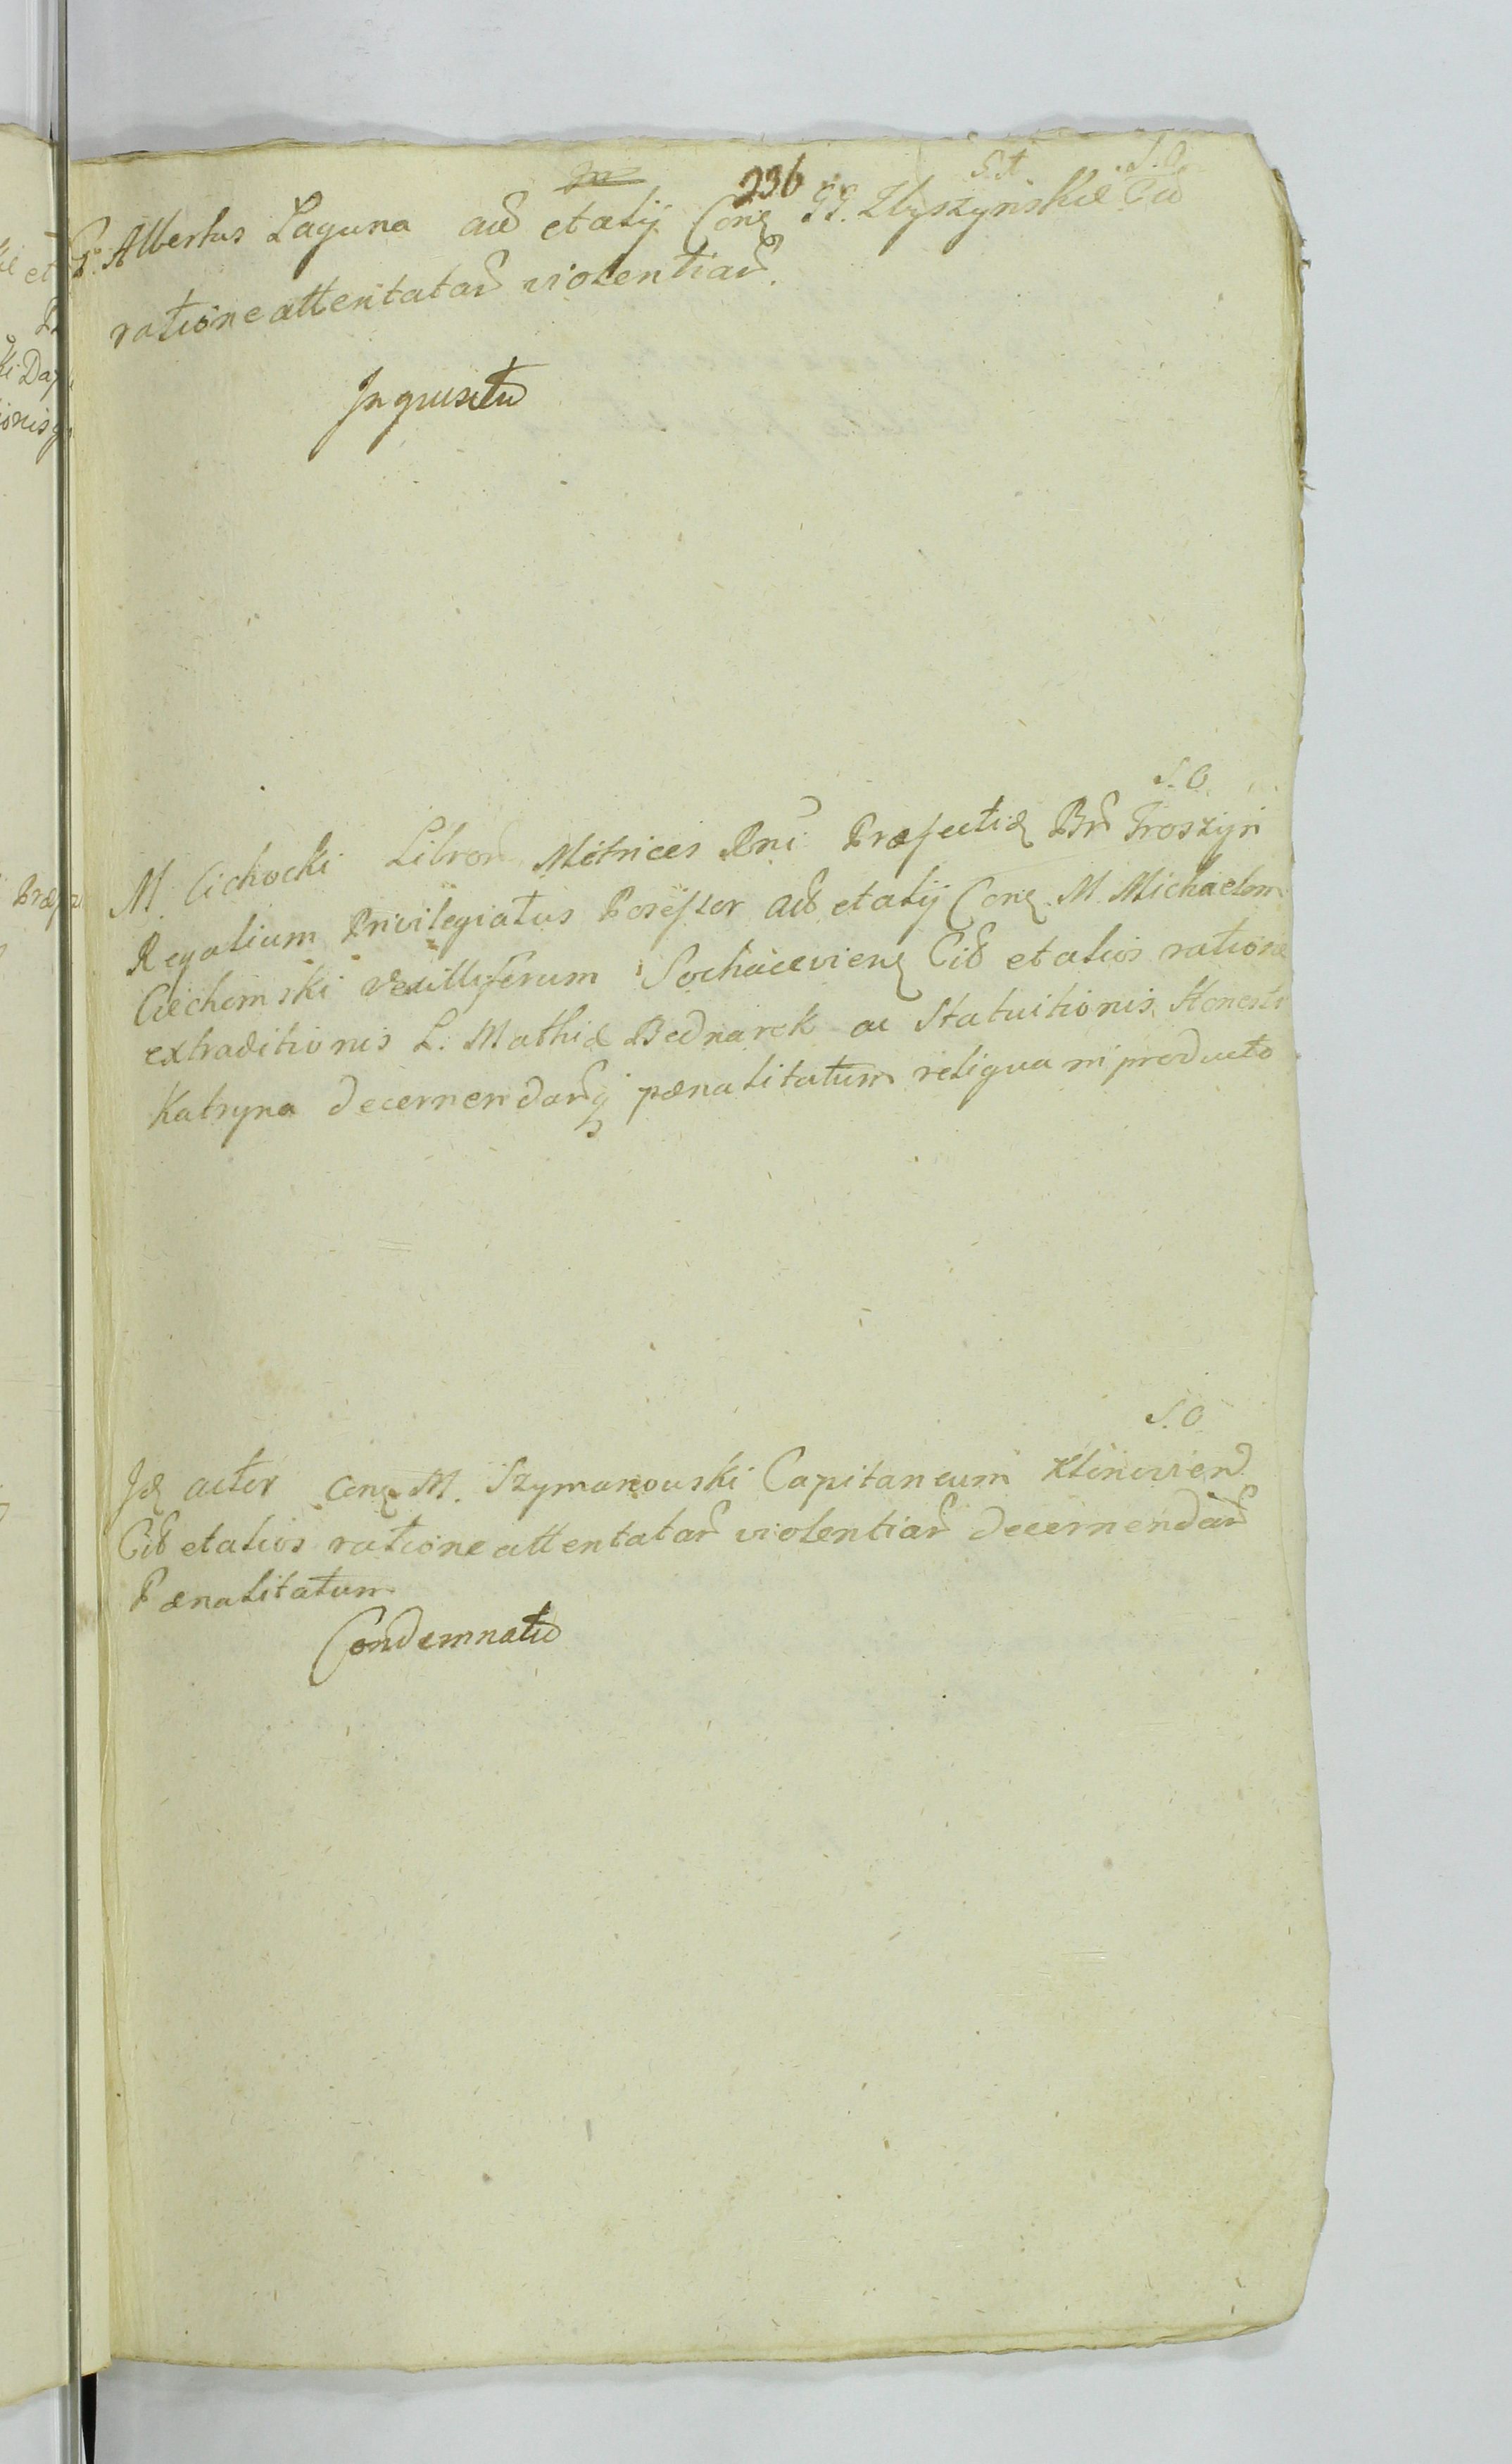 236
S. A. S. O.
G. Albertus Laguna acĕ et alij Conꝫ GG. Zbyszynskie Cić
ratione attentatar̃ violentiar̃.
Inquisitũ
S. O.
M. Cichocki Libror̃ Metrices Rni Præfectiꝫ Br̃ Groszyn
Regalium Privilegiatus Poseſsor acĕ et alij Conꝫ M. Michaelem
Ciechomski Vexilliferum Sochacevienꝫ Cić et alios ratione
extraditionis L. Mathiæ Bednarek ac Statuitionis Honestæ
Katryna decernendarq̃ pænalitatum reliqua in producto
S. O.
Idꝫ actor Conꝫ M. Szymanowski Capitaneum Klinovien
Cić et alios ratione attentatar̃ violentiar̃ decernendar̃
Pænalitatum
Condemnatũ